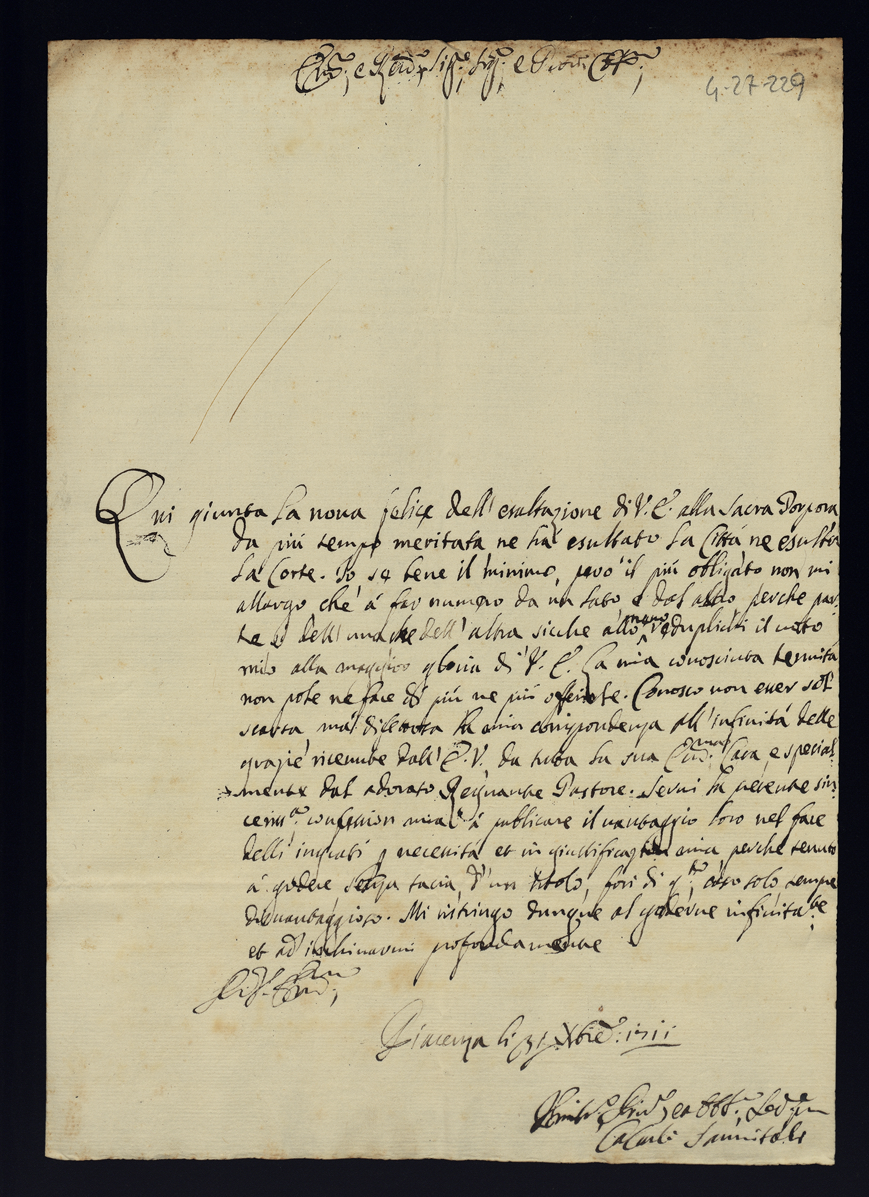 Em.mo e Rev.mo Sig.r Sig.r e Pron Col.mo
4-27-229
Qui giunta la nova felice dell' esaltazione di V. E. alla Sacra Porpora
da più tempo meritata ne hà esultato la Città ne esultò
la Corte. Io se bene il minimo, però il più obligato non mi
allargo che à far numero da un lato e dal altro perche par-
te e dell' una che dell' altra siche reduplicai il voto
mio alla maggior gloria di V. E. La mia conosciuta tenuità
non pote ne fare di più ne più. Conosco non esser sol
scarsa ma difettosa la mia corrispondenza all' infinità delle
grazie ricevute dall' E. V. da tutta la sua Em.ma Casa, e special-
mente dal adorato Regnante Pastore. Servi la presente sin-
ceriss.a confession mia à publicare il vantaggio loro nel fare
delli ingrati p necessità et in giustificazion mia, perche tenuto
à godere senza taccia, d' un titolo, fori di q.to, solo sempre
disvantaggioso. Mi ristringo dunque al goderne infinita.te
et ad' inchinarmi profondamente
Di V. Em.za
Piacenza li 31 Xbre 1711
Humil.o Ser.re
Sanvitali